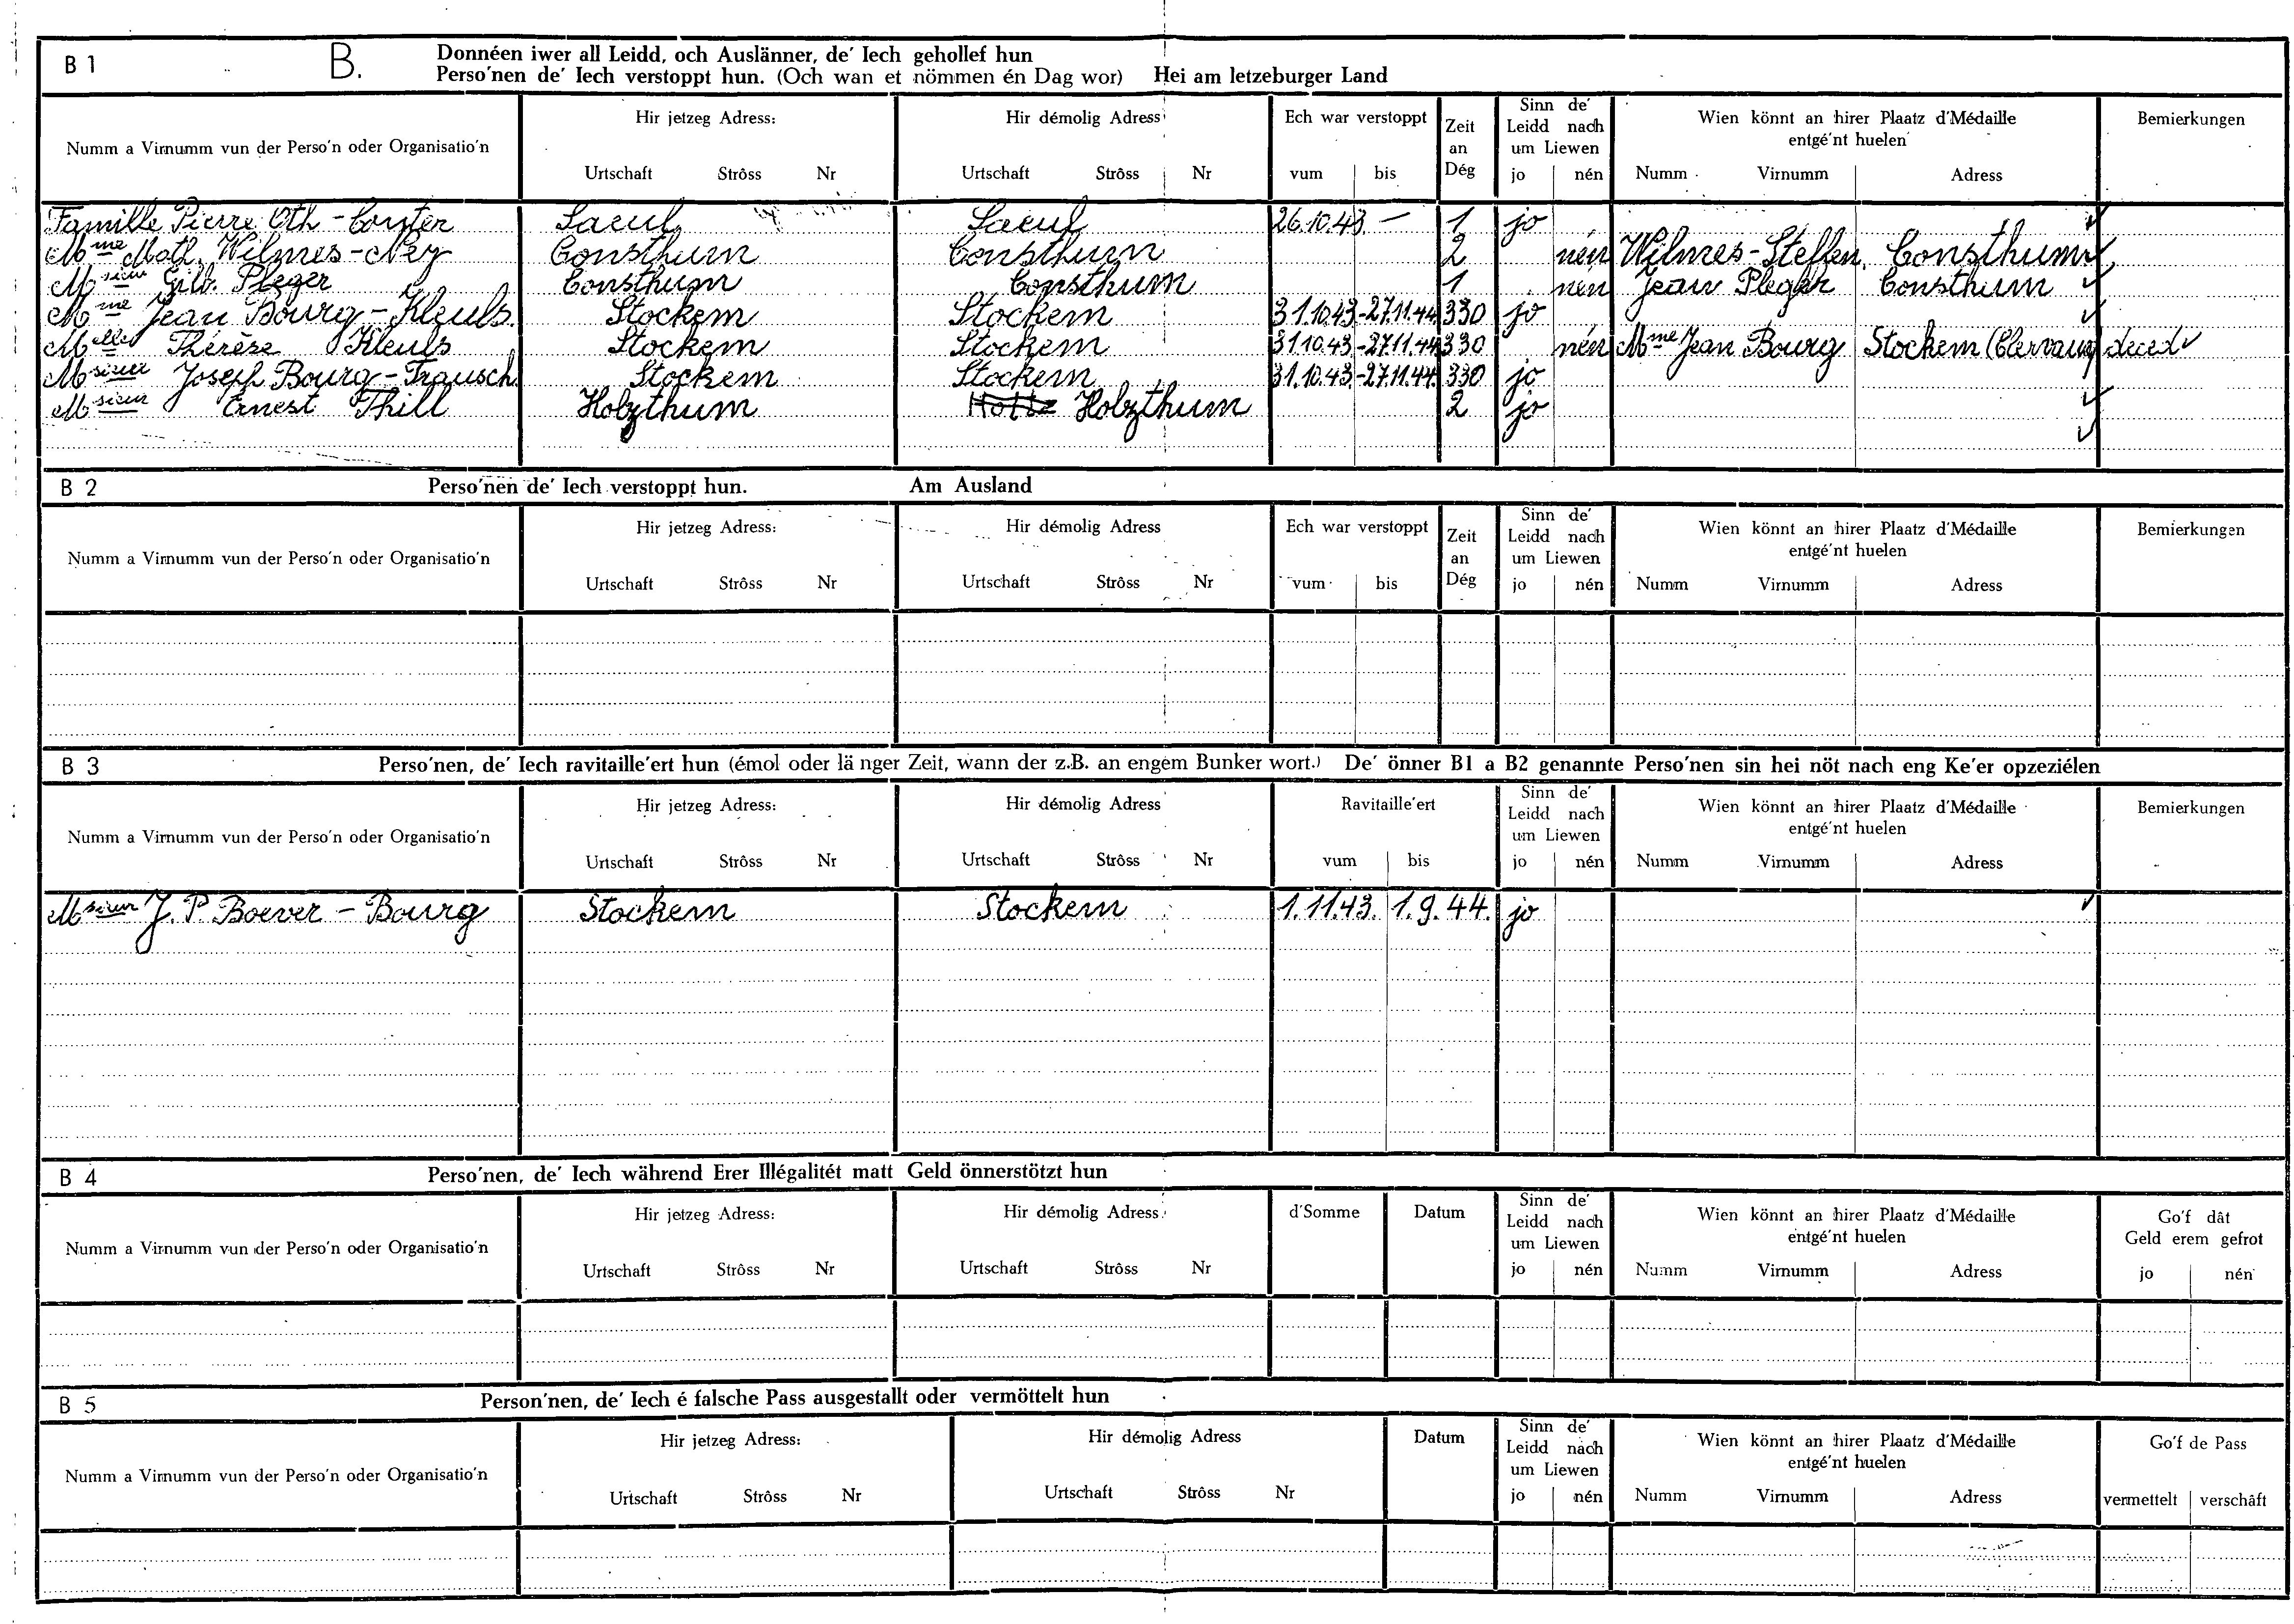 B 1 B. Donnéen iwer all Leidd, och Auslänner, de' Iech gehollef hun
Perso'nen de' Iech verstoppt hun. (Och wan et nömmen én Dag wor) Hei am letzeburger Land
Numm a Virnumm vun der Perso'n oder Organisatio'n
Hir jetzeg Adress:
Urtschaft Strôss Nr
Hir démolig Adress
Urtschaft Strôss Nr
Ech war verstoppt
vum bis
Zeit
an
Dég
Sinn de'
Leidd nach
um Liewen
jo nén
Wien könnt an hirer Plaatz d'Médaille
entgé'nt huelen
Numm Virnumm Adress
Bemierkungen
Famille Pierre Oth - Conter Saeul Saeul 26.10.43 — 1 jo
Mme Math. Wilmes - Ney Consthum Consthum 2 nén Wilmes - Steffen Consthum
Msieur Gilb. Pleger Consthum Consthum 1 nén Jean Pleger Consthum
Mme Jean Bourg - Kleuls Stockem Stockem 31.10.43 - 27.11.44 330 jo
Melle Thérèse Kleuls Stockem Stockem 31.10.43 - 27.11.44 330 nén Mme Jean Bourg Stockem (Clervaux) deced
Msieur Joseph Bourg - Trausch Stockem Stockem 31.10.43 - 27.11.44 330 jo
Msieur Ernest Thill Holzthum Holtz Holzthum 2 jo
B 2 Perso'nen de' Iech verstoppt hun. Am Ausland
Numm a Virnumm vun der Perso'n oder Organisatio'n
Hir jetzeg Adress:
Urtschaft Strôss Nr
Hir démolig Adress
Urtschaft Strôss Nr
Ech war verstoppt
vum bis
Zeit
an
Dég
Sinn de'
Leidd nach
um Liewen
jo nén
Wien könnt an hirer Plaatz d'Médaille
entgé'nt huelen
Numm Virnumm Adress
Bemierkungen
B 3 Perso'nen, de' Iech ravitaille'ert hun (émol oder länger Zeit, wann der z.B. an engem Bunker wort.) De' önner B1 a B2 genannte Perso'nen sin hei nöt nach eng Ke'er opzeziélen
Numm a Virnumm vun der Perso'n oder Organisatio'n
Hir jetzeg Adress:
Urtschaft Strôss Nr
Hir démolig Adress
Urtschaft Strôss Nr
Ravitaille'ert
vum bis
Sinn de'
Leidd nach
um Liewen
jo nén
Wien könnt an hirer Plaatz d'Médaille
entgé'nt huelen
Numm Virnumm Adress
Bemierkungen
Msieur J. P. Boever - Bourg Stockem Stockem 1.11.43. 1.9.44. jo
B 4 Perso'nen, de' Iech während Erer Illégalitét matt Geld önnerstötzt hun
Numm a Virnumm vun der Perso'n oder Organisatio'n
Hir jetzeg Adress:
Urtschaft Strôss Nr
Hir démolig Adress
Urtschaft Strôss Nr
d'Somme
Datum
Sinn de'
Leidd nach
um Liewen
jo nén
Wien könnt an hirer Plaatz d'Médaille
entgé'nt huelen
Numm Virnumm Adress
Go'f dât
Geld erem gefrot
jo nén
B 5 Person'nen, de' Iech é falsche Pass ausgestallt oder vermöttelt hun
Numm a Virnumm vun der Perso'n oder Organisatio'n
Hir jetzeg Adress:
Urtschaft Strôss Nr
Hir démolig Adress
Urtschaft Strôss Nr
Datum
Sinn de'
Leidd nach
um Liewen
jo nén
Wien könnt an hirer Plaatz d'Médaille
entgé'nt huelen
Numm Virnumm Adress
Go'f de Pass
vermettelt verschâft